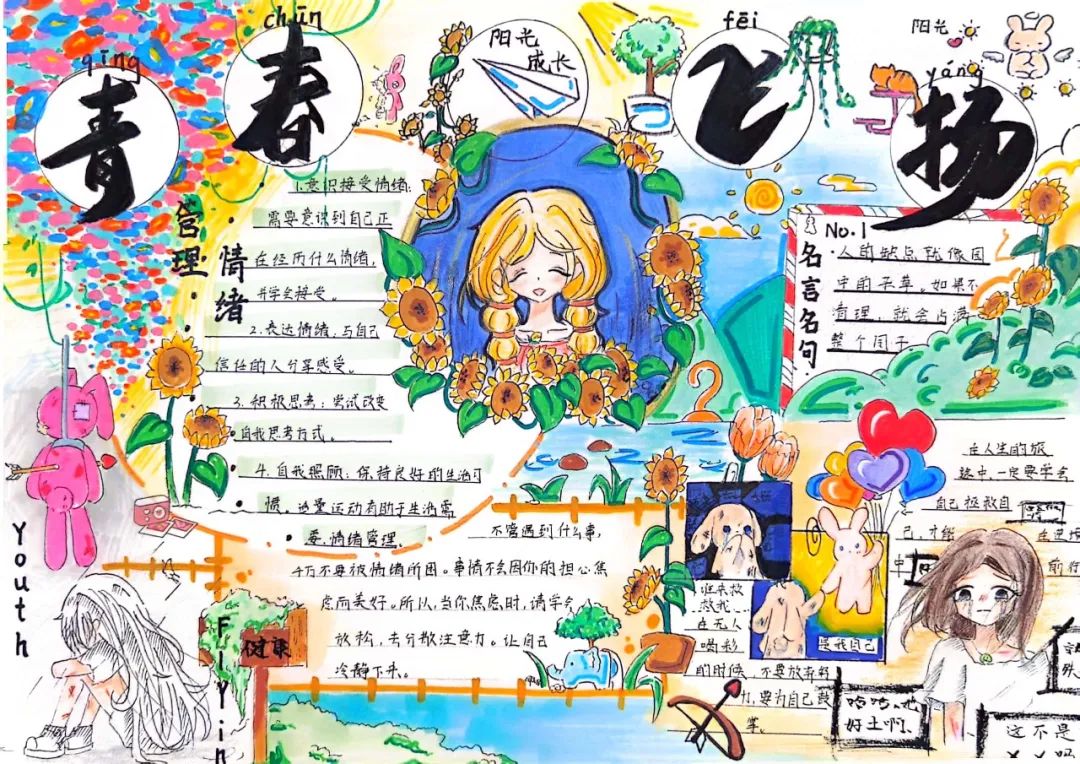 qīng
chūn
fēi
yáng
青春飞扬
阳光
成长
阳光
情绪
管理
1.意识接受情绪:
需要意识到自己正
在经历什么情绪,
并学会接受。
2.表达情绪,与自己
信任的人分享感受。
3.积极思考:尝试改变
自我思考方式。
4.自我照顾:保持良好的生活习
惯,适量运动有助于生活需
要,情绪管理。
不管遇到什么事,
千万不要被情绪所困。事情不会因你的担心焦
虑而美好。所以,当你焦虑时,请学会
放松,去分散注意力。让自己
冷静下来。
No.1
名言名句
人的缺点就像园
中的杂草。如果不
清理,就会占满
整个园子
在人生的旅
途中,一定要学会
自己拯救自
己,才能
在逆境
中
前行
谁来救
救我
是我自己
在无人
喝彩
的时候,不要放弃
要为自己鼓
掌。
哈哈,她
好土啊。
这不是
××吗
健康
Youth
Flyin